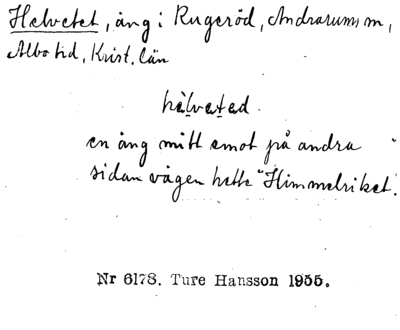 Helvetet, äng i Rugeröd, Andrarums sn,
Albo hd, Krist. län
hèlvetad
en äng mitt emot på andra
sidan vägen hette "Himmelriket".
Nr 6178. Ture Hansson 1955.